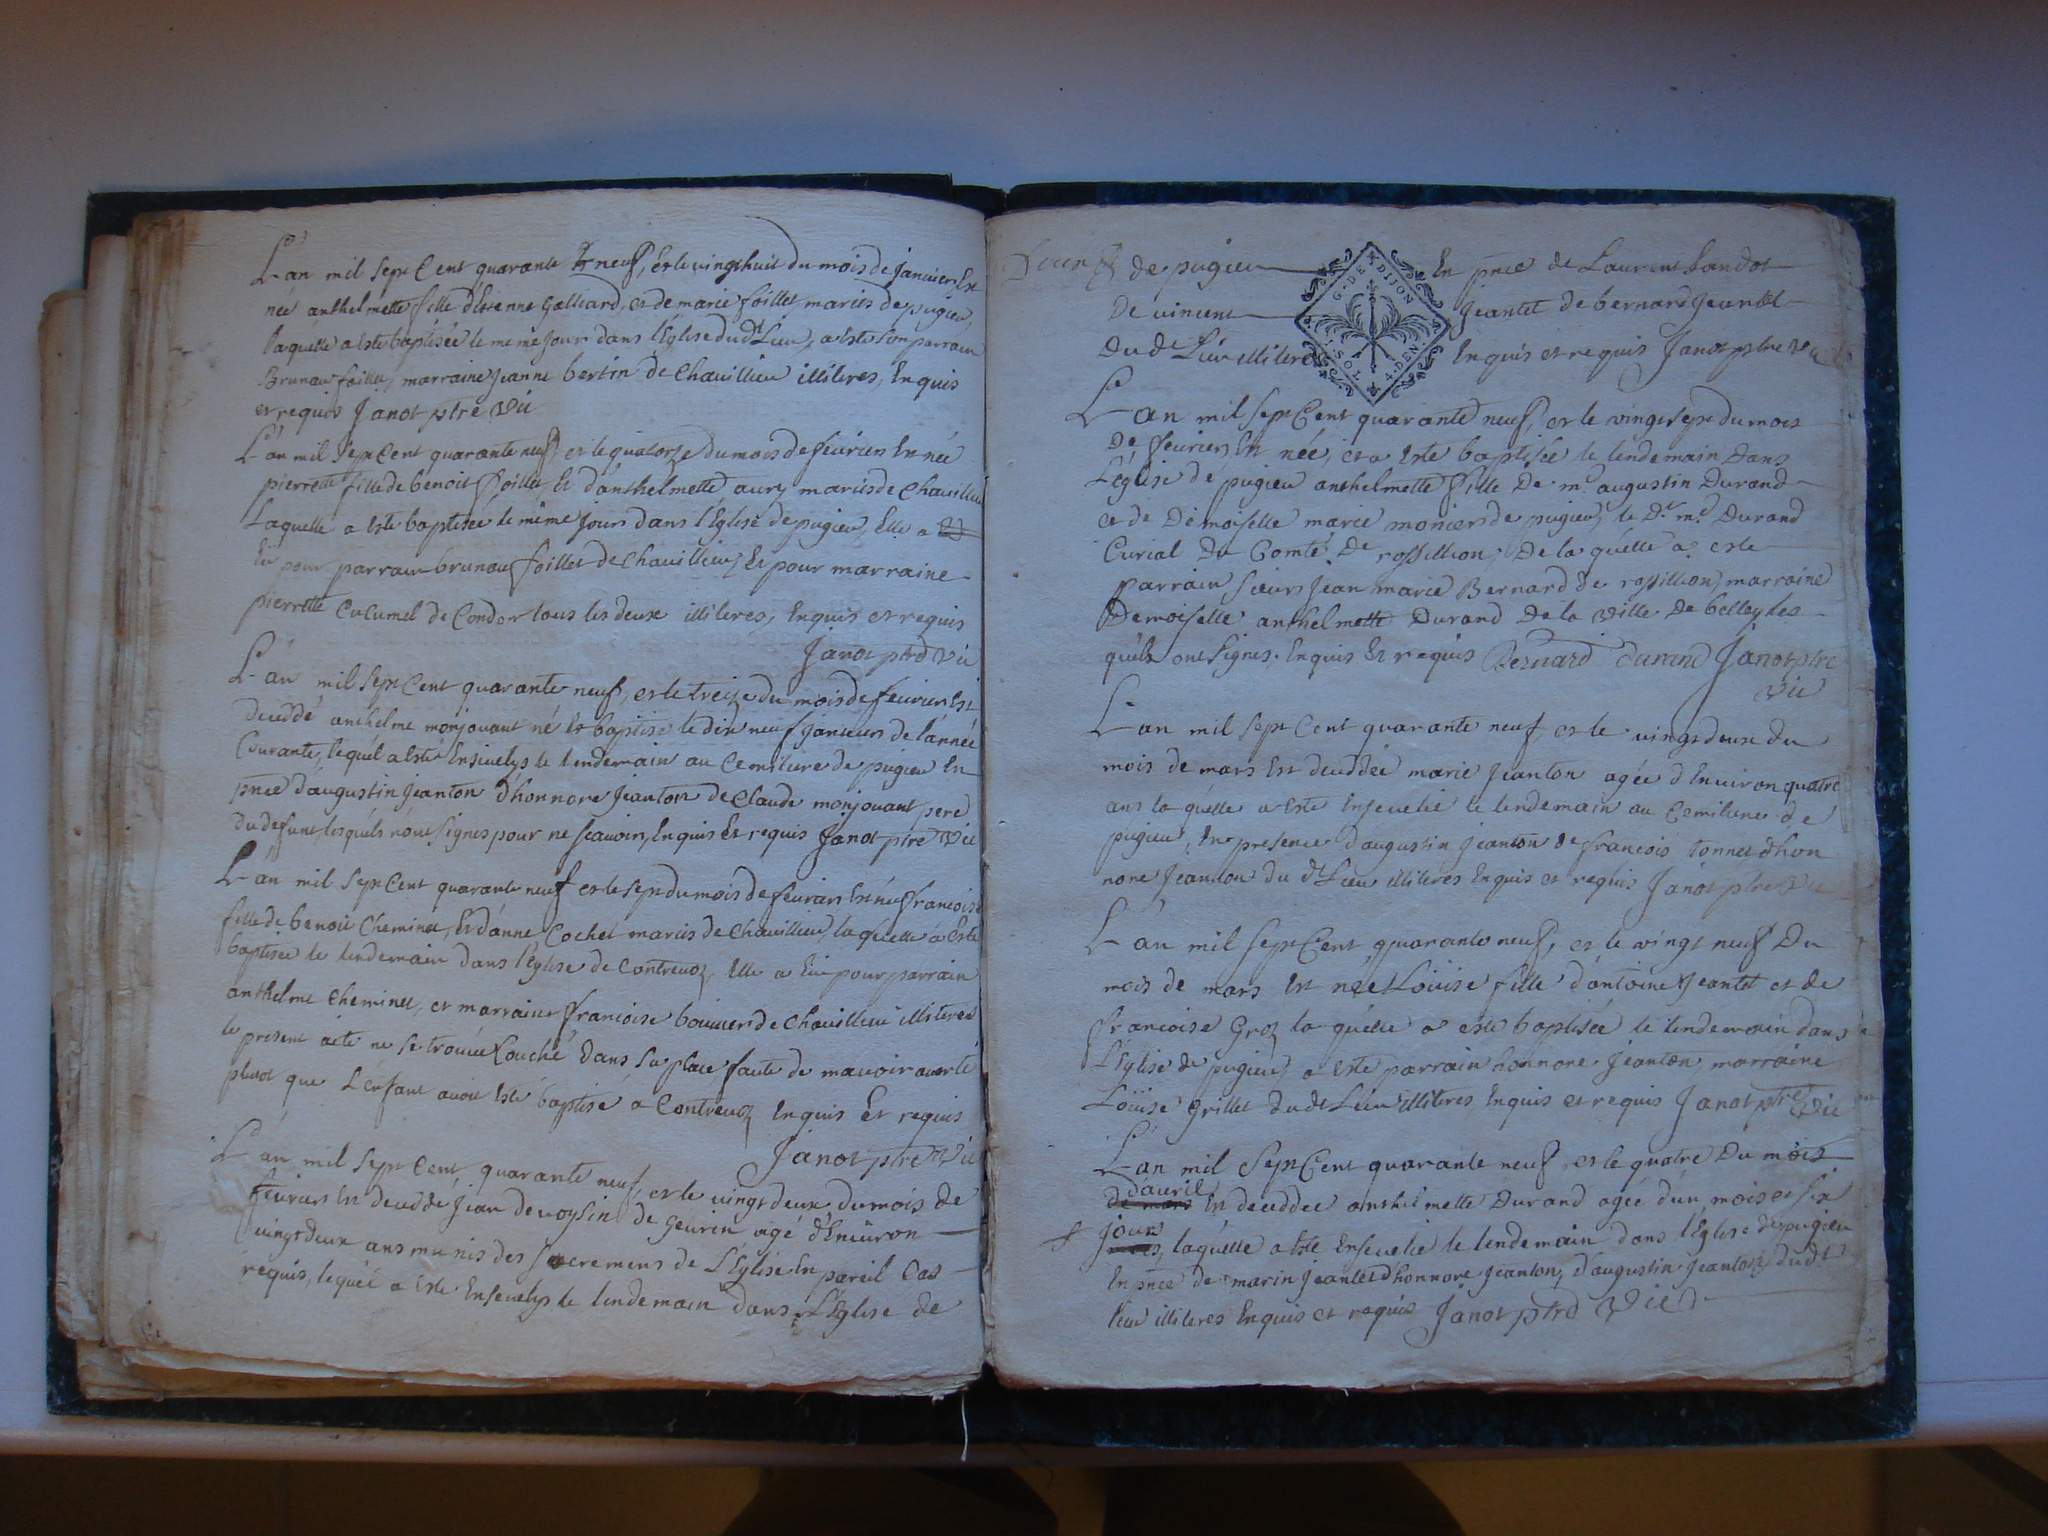 L'an mil sept Cent quarante neuf, et le vingt huit du mois de Janvier, Est
née anthelmette fille d'Etienne Galliard, et de marie foillet mariés de pugieu,
laquelle a Esté baptisée le même jour dans l'Eglise dud^t Lieu, a Esté son parrain
Brunau foillet, marraine jeanne bertin de Chavillieu illiteres, Enquis
et requis Janot ptre vic
L'an mil sept Cent quarante neuf, et le quatorze du mois de fevrier Est née
pierrette fille de benoit foillet, Et d'anthelmette aury mariés de Chavillieu
Laquelle a Esté baptisée le même jour dans l'Eglise de pugieu, Elle a
Eu pour parrain brunau foillet de Chavillieu, Et pour marraine
pierrette Cucumel de Condon tous les deux illiteres, Enquis et requis
Janot ptre vic
L'an mil sept Cent quarante neuf, et le treize du mois de fevrier Est
deceddé anthelme monjouant né Et baptisé le dix neuf janvier de l'année
Courante, lequel a Esté Ensevelys le lendemain au Cemitiere de pugieu En
pnce d'augustin jeanton d'honnore jeanton de Claude monjouant pere
du defunt, lesquels n'ont signes pour ne scavoir, Enquis Et requis Janot ptre vic
L'an mil sept Cent quarante neuf et le sept du mois de fevrier Est née francoise
fille de benoit Cheminet, Et d'anne Cochet mariés de Chavillieu, laquelle a Esté
baptisée le lendemain dans l'Eglise de Contrevoz, Elle a Eu pour parrain
anthelme Cheminet, et marraine francoise bouvier de Chavillieu illiteres
le present acte ne se trouve Couché dans sa place faute de m'avoir averti
plutot que L'enfant avoit Esté baptisé a Contrevoz Enquis Et requis
Janot ptre vic
L'an mil sept Cent quarante neuf, et le vingt deux du mois de
fevrier Est deceddé jean devoysin de Geurin agé d'Environ
vingt deux ans munis des sacremens de L'Eglise En pareil Cas
requis, lequel a Esté Ensevelys le lendemain dans L'Eglise de
de pugieu En pnce de Laurent
De vincent jeantet de bernard jeantet
Dud^t Lieu illiteres Enquis et requis Janot ptre vic
G. DE DIJON
SOL 4. DEN
L'an mil sept Cent quarante neuf, et le vingt sept du mois
De fevrier Est née, et a Esté baptisée le lendemain Dans
L'église de pugieu anthelmette fille De m^e augustin Durand
et de Demoiselle marie monier de pugieu, le D^t m^e Durand
Curial Du Comté De rossillion, De laquelle a esté
parrain sieur jean marie Bernard de rossillion, marraine
Demoiselle anthelmette Durand De la ville De belley les
quels ont signes. Enquis Et requis Bernard durand Janot ptre
vic
L'an mil sept Cent quarante neuf, et le vingt deux du
mois de mars Est deceddée marie jeanton agée d'Environ quatre
ans laquelle a Esté Ensevelie le lendemain au Cemitiere de
pugieu, En presence d'augustin jeanton de francois tonnet d'hon
nore jeanton du d^t Lieu illiteres Enquis et requis Janot ptre vic
L'an mil sept Cent quarante neuf, et le vingt neuf Du
mois de mars Est née Loüise fille d'antoine jeantet et de
francoise Groz laquelle a esté baptisée le lendemain dans
l'Eglise de pugieu, a Esté parrain honnore jeanton, marraine
Loüise Grillet dud^t Lieu illiteres Enquis et requis Janot ptre vic
L'an mil sept Cent quarante neuf, et le quatre Du mois
d'avril
de mars Est deceddée anthelmette Durand agée d'un mois et six
jours
laquelle a Esté Ensevelie le lendemain dans l'Eglise de pugieu
En pnce de marin jeantet d'honnore jeanton, d'augustin jeanton, dud^t
lieu illiteres Enquis et requis Janot ptre vic